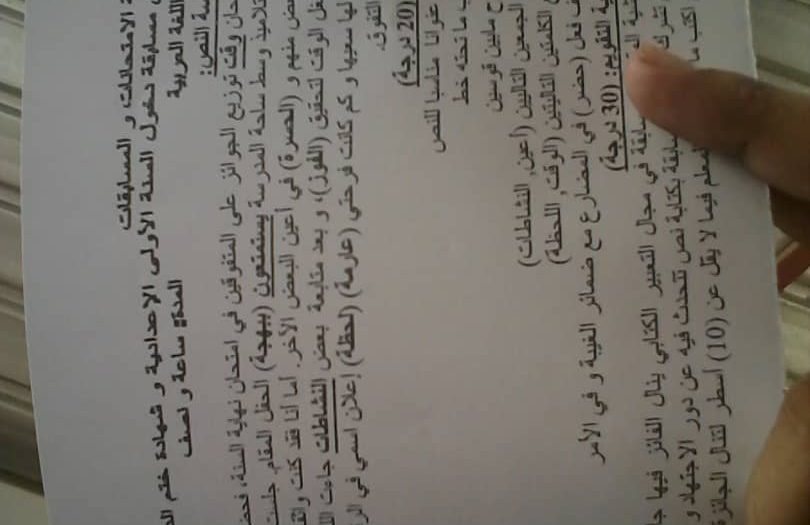 الامتحانات و المسابقات
مسابقة دخول السنة الأولى الاعدادية و شهادة ختم
اللغة العربية المدة: ساعة و نصف
النص:
حان وقت توزيع الجوائز على المتفوقين في امتحان نهاية السنة،
وسط ساحة المدرسة يستمتعون (ببهجة) الحفل المقام،
منهم و (الحسرة) في أعين البعض الآخر. أما أنا فقد كنت
الوقت لتحقيق (الفوز)، و بعد متابعة بعض النشاطات جاءت
سعيها و كم كانت فرحتي (عارمة) (لحظة) إعلان اسمي في
التفوق.
(20 درجة)
عنوانا مناسبا للنص
ما تحته خط
مابين قوسين
الجمعين التاليين (أعين, النشاطات)
الكلمتين التاليتين (الوقت, اللحظة)
فعل (حضر) في المضارع مع ضمائر الغيبة و في الأمر
التقويم: (30 درجة)
في مجال التعبير الكتابي ينال الفائز فيها
بكتابة نص تتحدث فيه عن دور الاجتهاد و
فيما لا يقل عن (10) أسطر لتنال